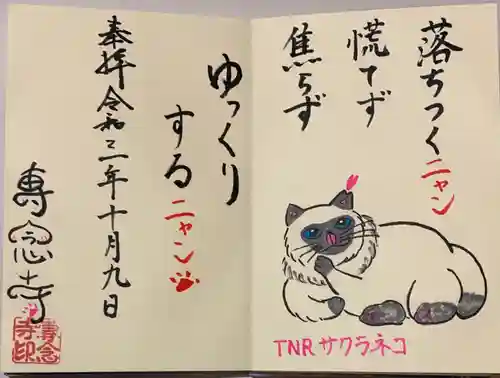 落ちつくニャン
慌てず
焦らず
ゆっくり
するニャン
奉拝 令和三年十月九日
專念寺
專念寺印
TNRサクラネコ